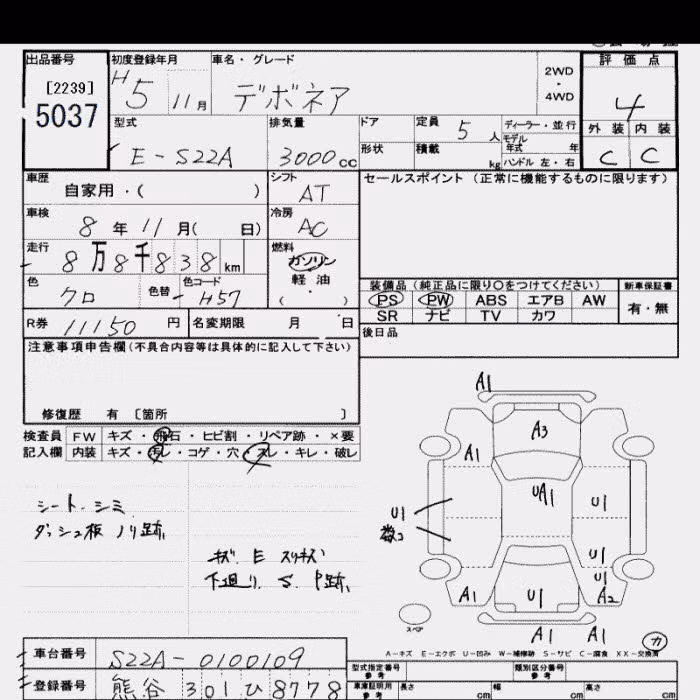 出品番号 初度登録年月 車名・グレード 2WD・4WD 評価点
[2239]
5037
H5 11月 デボネア 4
型式 排気量 ドア 定員 5人 ディーラー・並行 外装 内装
E-S22A 3000cc 形状 積載 kg モデル年式 年 C C
ハンドル 左・右
車歴 自家用・( ) シフト AT セールスポイント (正常に機能するものに限ります)
車検 8年11月( 日) 冷房 AC
走行 8万8千838km 燃料 ガソリン
軽油
・
( )
色 クロ 色替 色コード H57
装備品 (純正品に限り○をつけてください) 新車保証書
PS PW ABS エアB AW 有・無
SR ナビ TV カワ
R券 11150円 名変期限 月 日 後日品
注意事項申告欄(不具合内容等は具体的に記入して下さい)
修復歴 有 [箇所 ]
検査員 FW キズ・飛石・ヒビ割・リペア跡・×要
記入欄 内装 キズ・汚レ・コゲ・穴・スレ・キレ・破レ
シート シミ
ダッシュ板 ノリ跡
キズ E スリキズ
下廻り S P跡
A1
A3
A1
UA1 U1
U1
数コ
U1
U1
A1 U1 A2
A1 A1
スペア
カ
A-キズ E-エクボ U-凹み W-補修跡 S-サビ C-腐食 XX-交換済
車台番号 S22A-0100109
登録番号 熊谷 301 ひ 8778
型式指定番号 参考 類別区分番号 参考
車庫証明用 参考 長さ cm 幅 cm 高さ cm